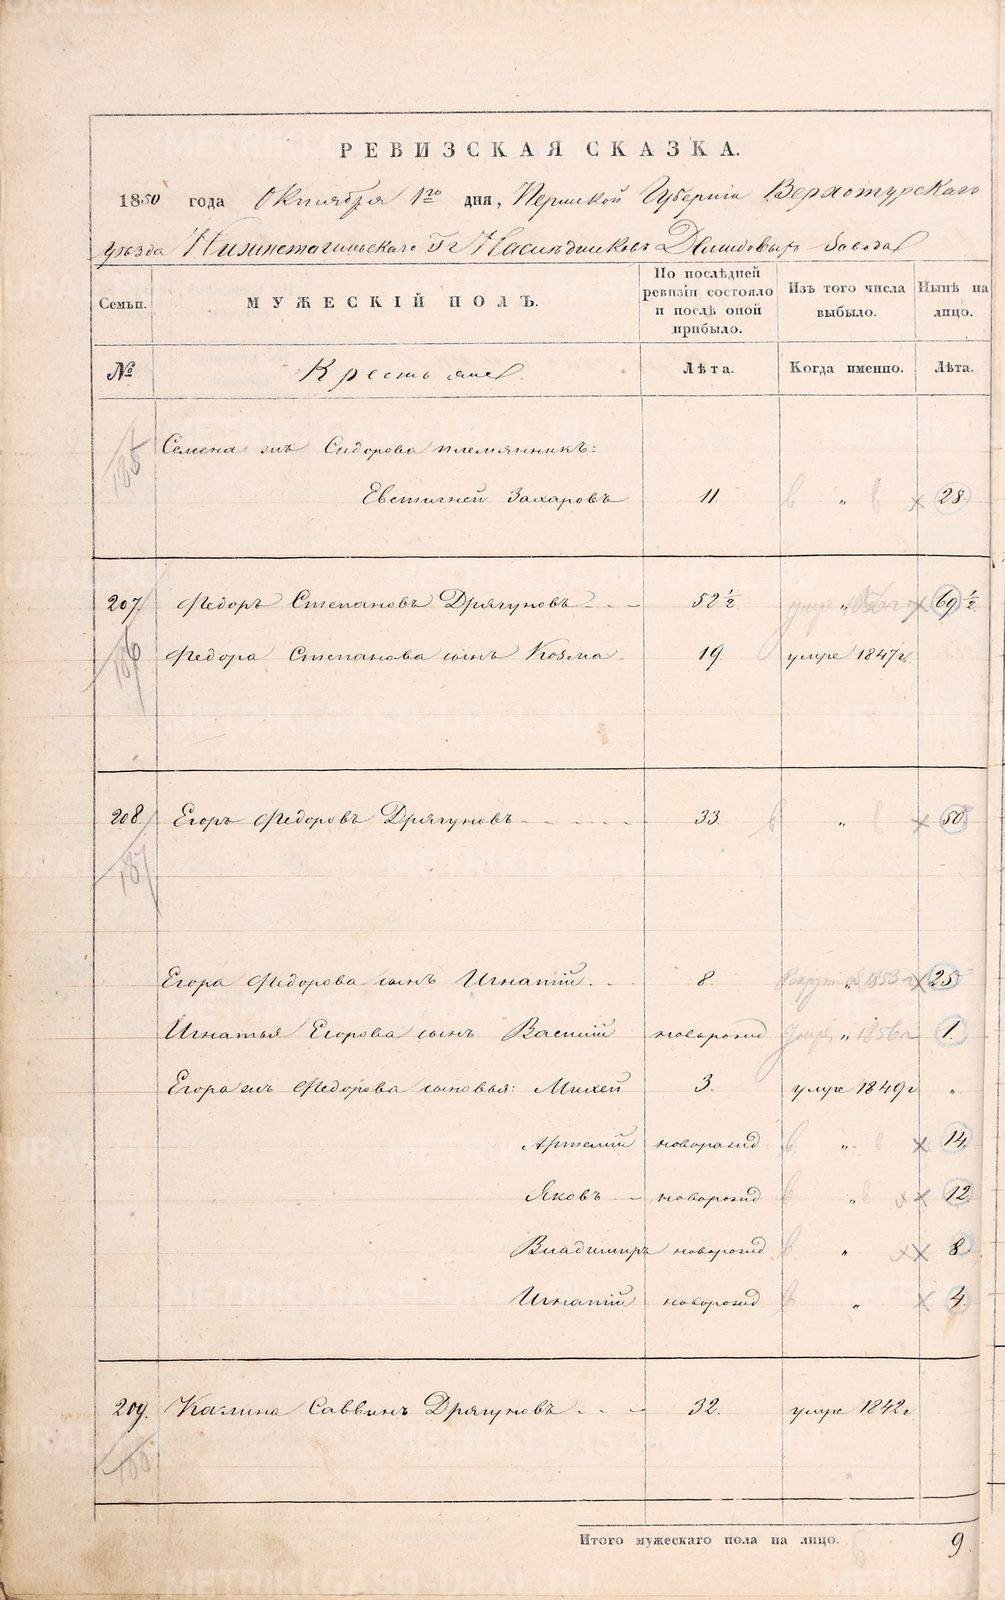 РЕВИЗСКАЯ СКАЗКА.
1850 года Октября 1го дня, Пермской Губернiи Верхотурскаго
уѣзда Нижнетагильскаго Гг Наслѣдниковъ Демидовыхъ Завода
Семьи. МУЖЕСКIЙ ПОЛЪ. По послѣдней ревизiи состояло и послѣ оной прибыло. Изъ того числа выбыло. Нынѣ на лицо.
№ Крестьяне. Лѣта. Когда именно. Лѣта.
185 Семена жъ Сидорова племянникъ:
Евстигней Захаровъ 11. „ 28.
207. Федоръ Степановъ Дрягуновъ 52 ½ умре 1856 „ 69 ½
186 Федора Степанова сынъ Козма 19 умре 1847 г.
208. Егоръ Федоровъ Дрягуновъ 33 „ 50.
187
Егора Федорова сынъ Игнатiй 8. „ 1853 г 25
Игнатья Егорова сынъ Василiй новорожд умре „ 1856 г 1.
Егора жъ Федорова сыновья: Михей 3. умре 1849 г „
Артемiй новорожд „ 14.
Яковъ новорожд „ 12.
Владимиръ новорожд „ 8
Игнатiй новорожд „ 4.
209. Калина Саввинъ Дрягуновъ 32. умре 1842 г
188
Итого мужескаго пола на лицо. 6 9.
METRIKI.GASO-URAL.RU